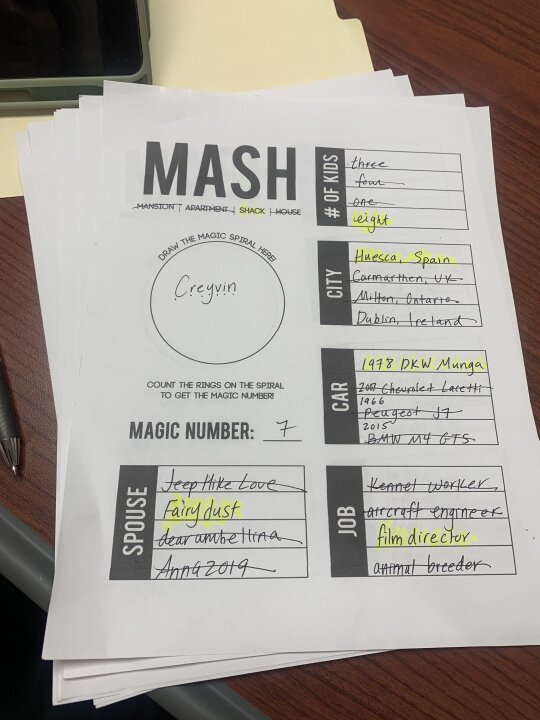 MASH
MANSION | APARTMENT | SHACK | HOUSE
DRAW THE MAGIC SPIRAL HERE!
Creyvin
COUNT THE RINGS ON THE SPIRAL
TO GET THE MAGIC NUMBER!
MAGIC NUMBER: 7
# OF KIDS
three
four
one
eight
CITY
Huesca, Spain
Carmarthen, UK
Milton, Ontario
Dublin, Ireland
CAR
1978 DKW Munga
2017 Chevrolet Lacetti
1966
Peugeot J7
2015
BMW M4 GTS
SPOUSE
Jeep Hike Love
Fairydust
dearumbellina
Anna2019
JOB
Kennel worker
aircraft engineer
film director
animal breeder